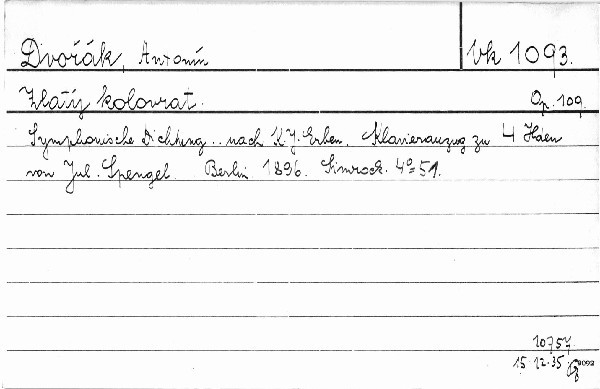 Dvořák, Antonín
Vk 1093.
Zlatý kolovrat.
Op. 109.
Symphonische Dichtung .. nach K. J. Erben. Klavierauszug zu 4 Häen
von Jul. Spengel. Berlin 1896. Simrock. 4° 51.
10757
15.12.35